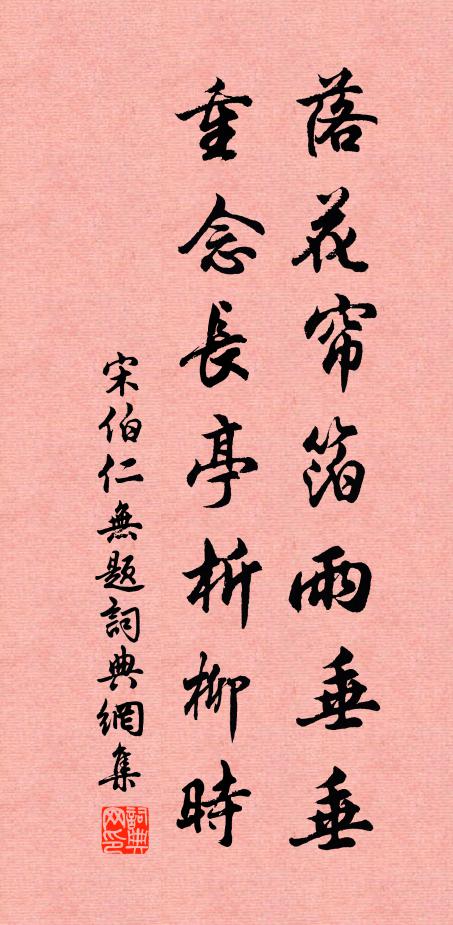 落花帘箔雨垂垂
重念長亭折柳時
宋伯仁無题詞典網集
詞典网印